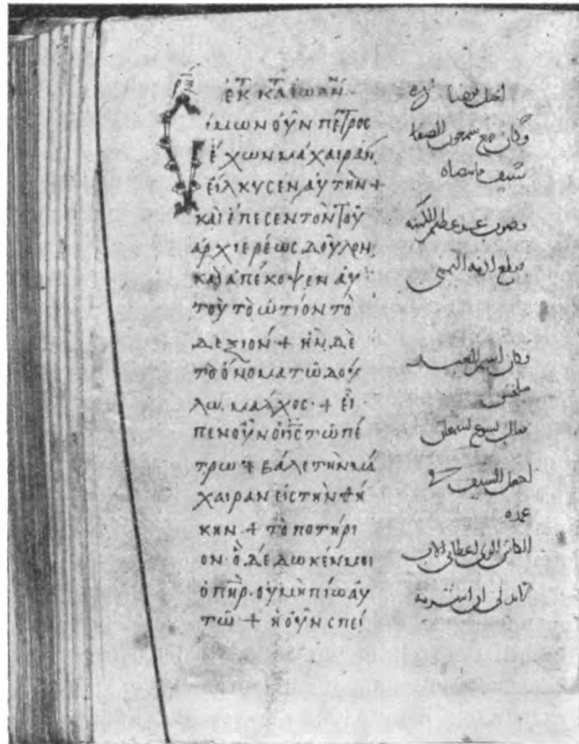 ἐκ κτ ἰωάν
Σίμων οὖν πέτρος
ἔχων μάχαιραν
εἵλκυσεν αὐτὴν +
καὶ ἔπεσεν τὸν τοῦ
ἀρχιερέως δοῦλον
καὶ ἀπέκοψεν αὐ
τοῦ τὸ ὠτίον τὸ
δεξιόν + ἦν δὲ
τὸ ὄνομα τῶ δού
λω. μάλχος. + εἶ
πεν οὖν ὁ ις τῶ πέ
τρω + βάλε τὴν μά
χαιραν εἰς τὴν θή
κην + τὸ ποτήρι
ον. ὃ δέδωκέν μοι
ὁ πηρ. οὐ μὴ πίω αὐ
τω + ἡ οὖν σπεῖ
وكان مع سمعون الصفا
سيف فانتضاه
وضرب عبد عظيم الكهنة
وقطع اذنه اليمنى
وكان اسم العبد
فقال يسوع لسمعن
اجعل السيف في
غمده
الكاس الذي اعطاني الاب
اشربه